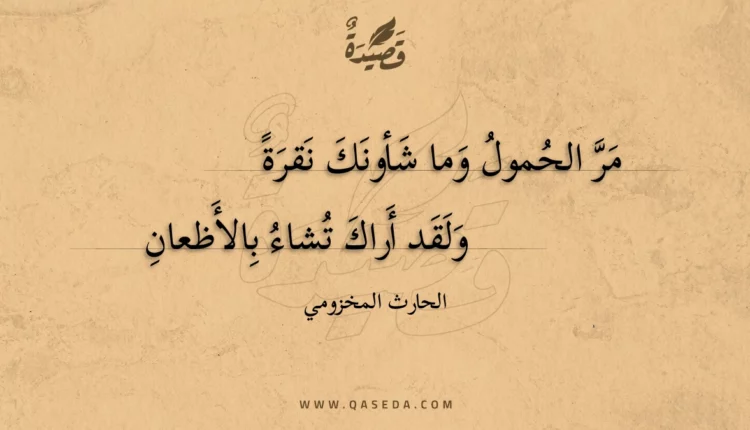 قَصِيدَةٌ
مَرَّ الحُمولُ وَما شَأَونَكَ نَقرَةً
وَلَقَد أَراكَ تُشاءُ بِالأَظعانِ
الحارث المخزومي
WWW.QASEDA.COM